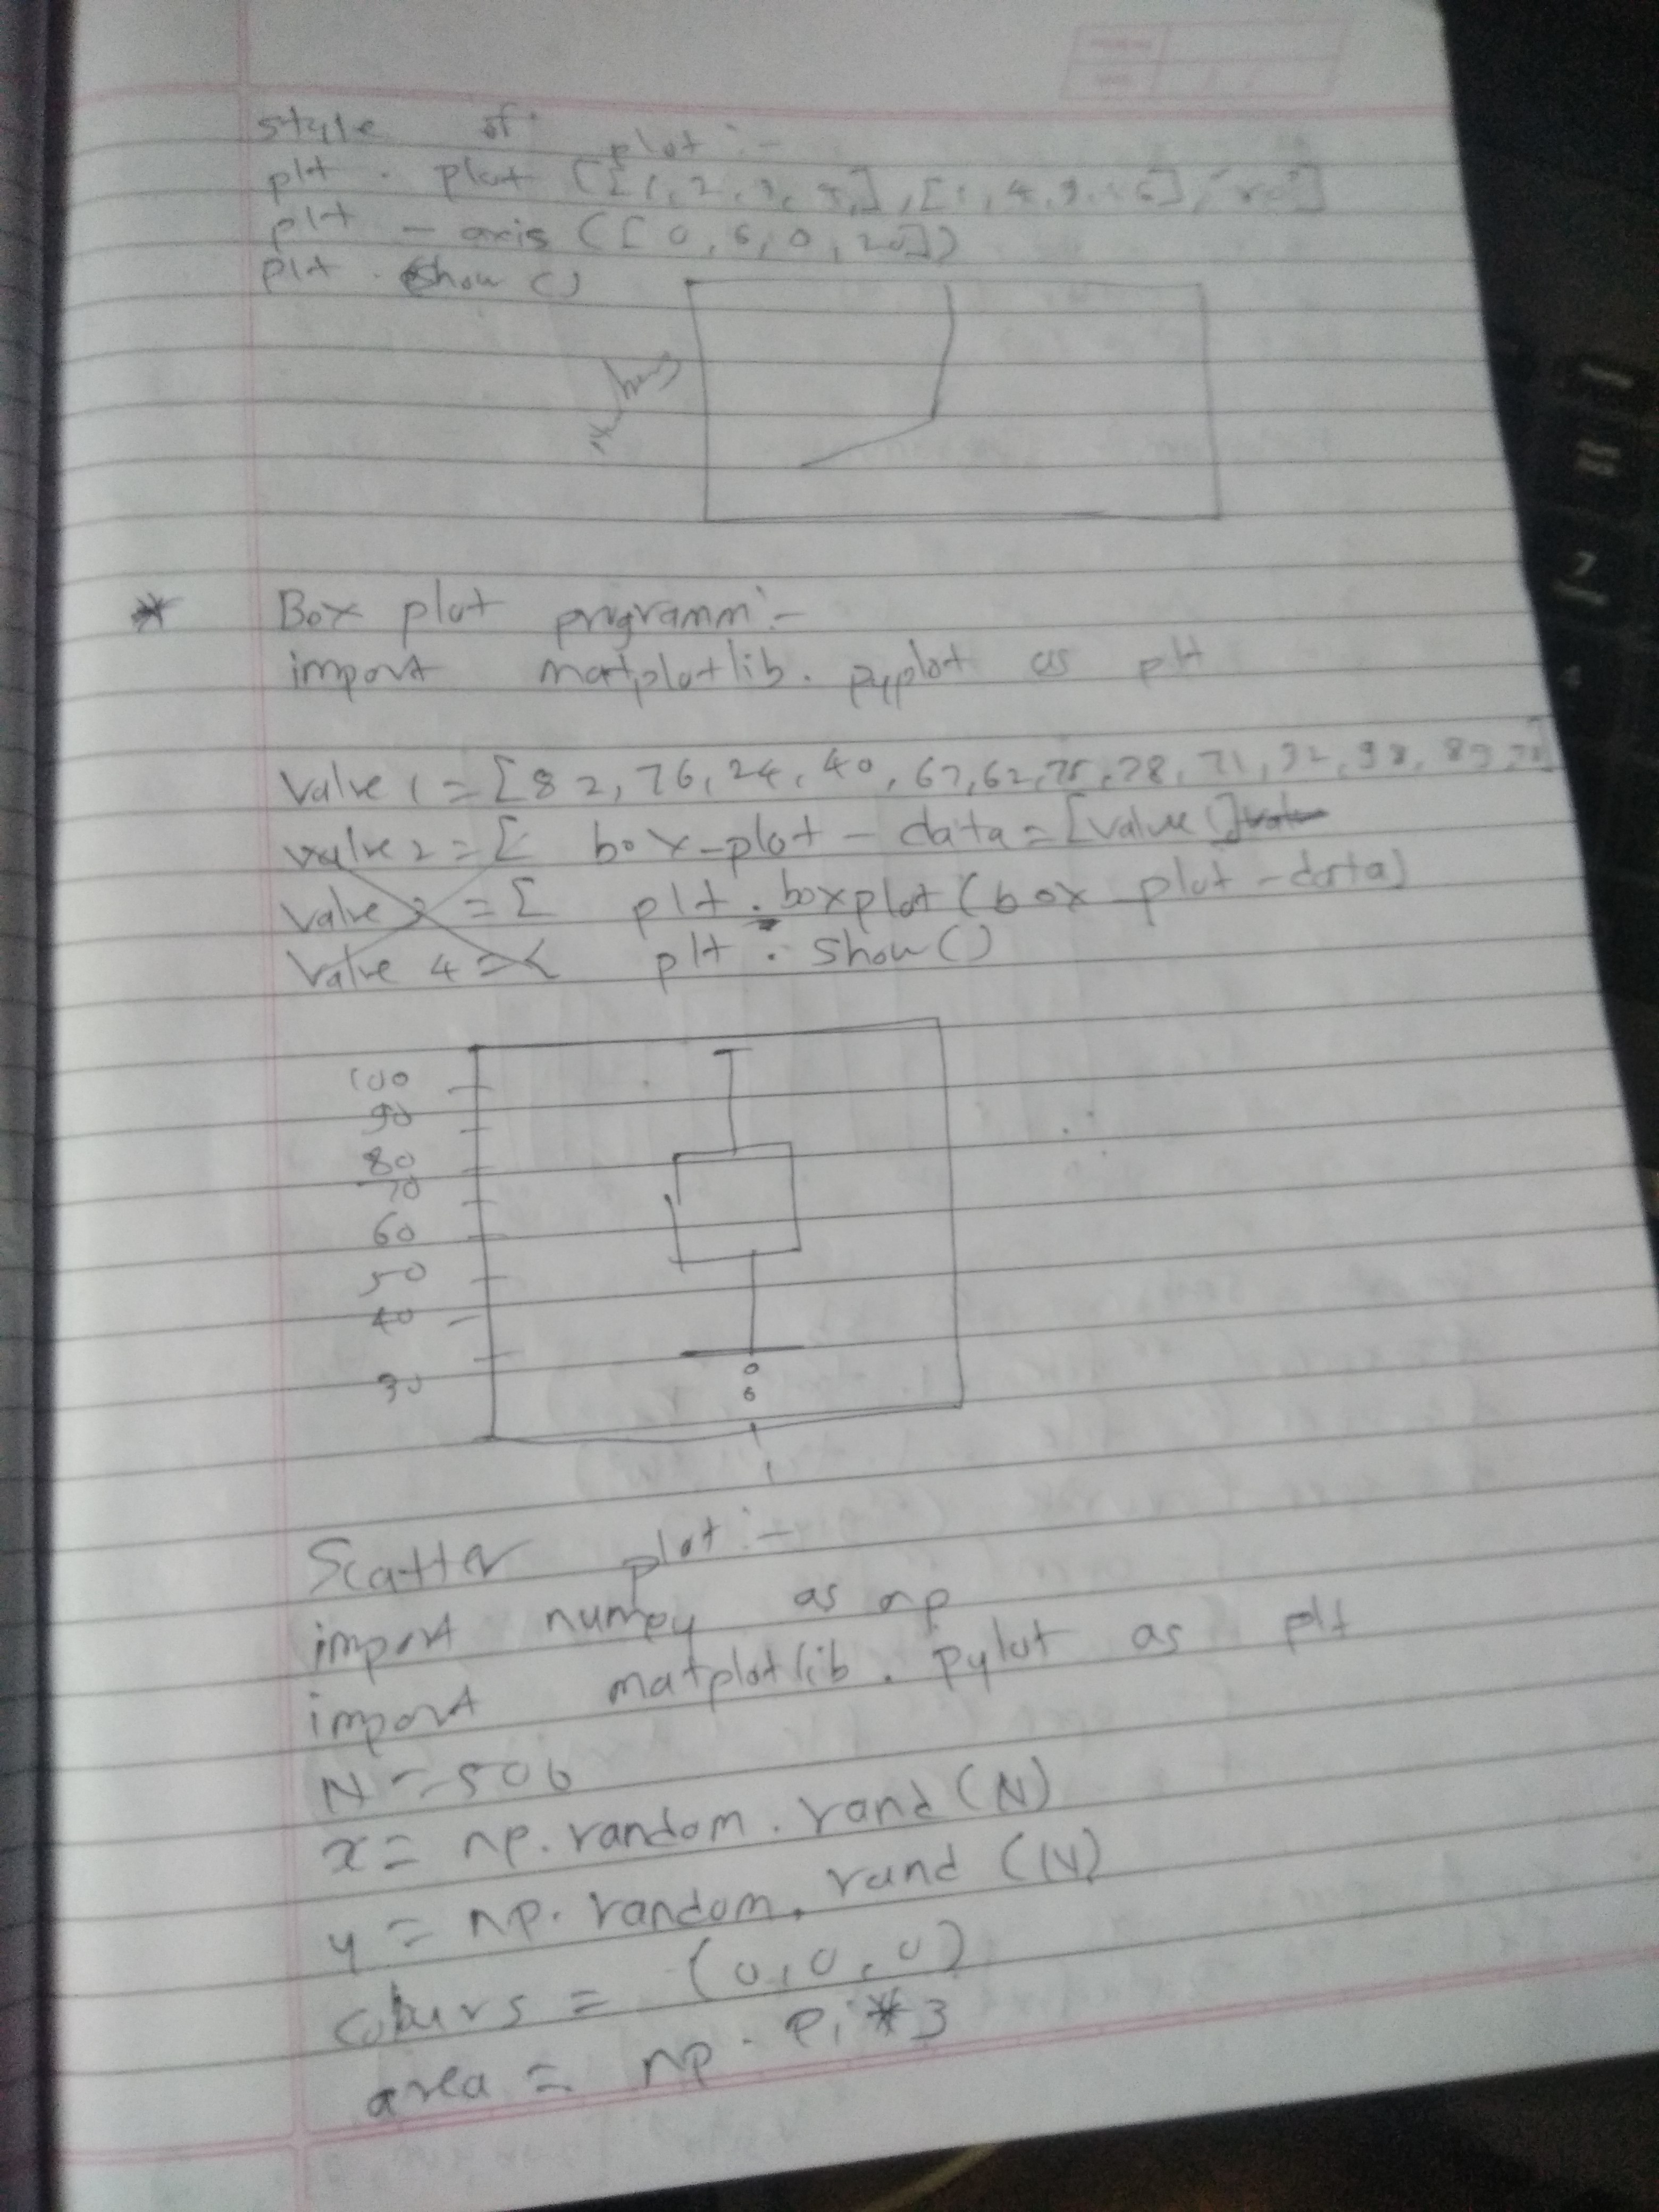 style of plot :-
plt . plot ([1, 2, 3, 4,], [1, 4, 9, 16], "ro"]
plt - axis ([0, 6, 0, 20])
plt . show ()
Box plot programm :-
import matplotlib. pyplot as plt
Value 1 = [82, 76, 24, 40, 67, 62, 75, 78, 71, 32, 98, 89, 78]
value 2 = [ box-plot - data = [value 1]
Value 3 = [ plt . boxplot (box plot - data)
Value 4 = plt . show ()
100
90
80
70
60
50
40
30
1
Scatter plot :-
import numpy as np
import matplotlib . pylot as plt
N = 500
x = np. random . rand (N)
y = np. random . rand (N)
colours = (0, 0, 0)
area = np . Pi * 3